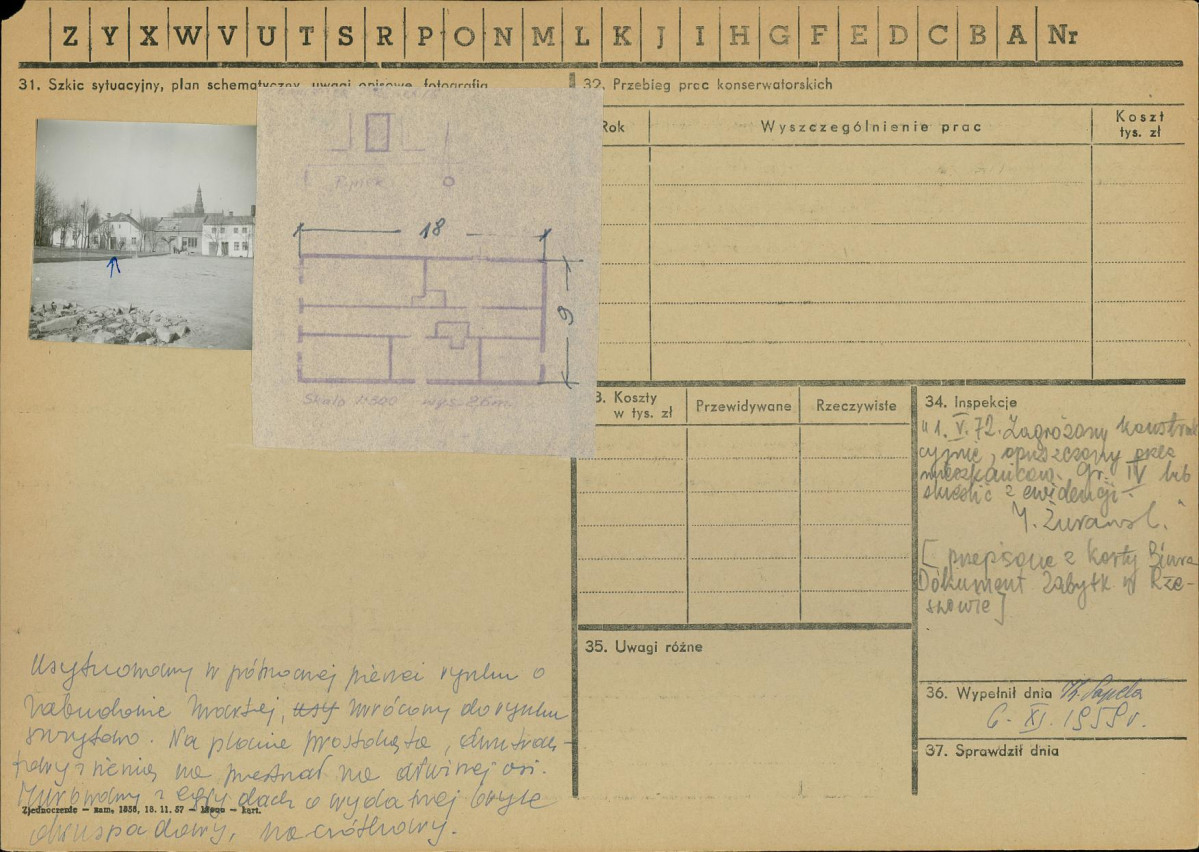 Z Y X W V U T S R P O N M L K J I H G F E D C B A Nr
31. Szkic sytuacyjny, plan schematyczny, uwagi opisowe, fotografia
32. Przebieg prac konserwatorskich
Rok
Wyszczególnienie prac
Koszt
tys. zł
Rynek
18
9
Skala 1:300 wys. 2,6m
3. Koszty
w tys. zł
Przewidywane
Rzeczywiste
34. Inspekcje
"1. V. 72. Zagrożony konstruk
cyjnie, opuszczony przez
mieszkańców. Gr. IV lub
skreślić z ewidencji.
[przepisane z Karty Biura
Dokument Zabytk w Rze-
szowie]
35. Uwagi różne
36. Wypełnił dnia
6. XI. 1959 r.
37. Sprawdził dnia
Usytuowany w północnej pierzei rynku o
zabudowie zwartej, usy zwrócony do rynku
szczytowo. Na planie prostokąta, dwutrak-
towy z sienią na przestrzał na dłuższej osi.
Murowany z cegły, dach o wydatnej bryle
Zjednoczenie — zam. 1038, 18. 11. 57 — — kart.
dwuspadowy, naczółkowy.